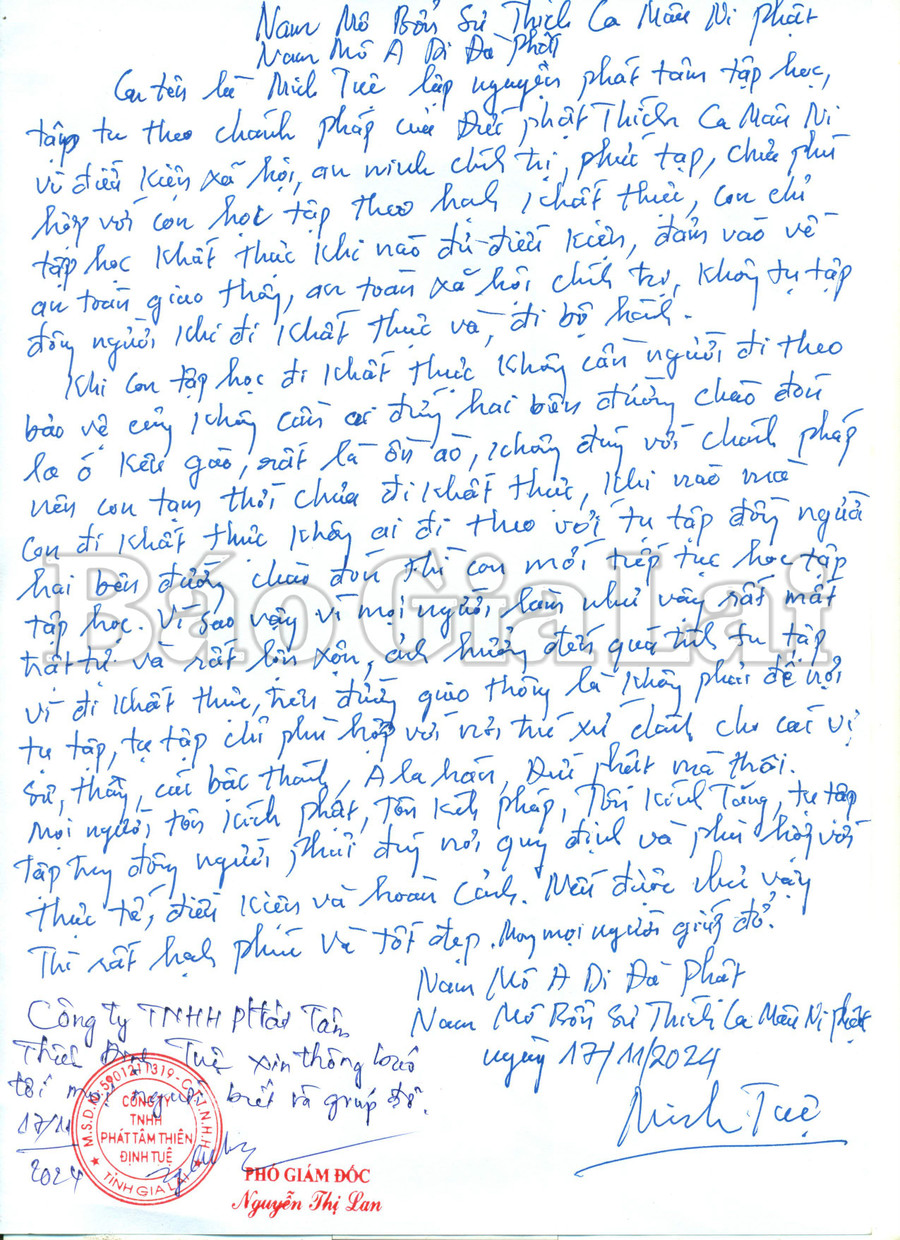 Nam Mô Bổn Sư Thích Ca Mâu Ni Phật
Nam Mô A Di Đà Phật
Con tên là Minh Tuệ lập nguyện phát tâm tập học,
tập tu theo chánh pháp của Đức phật Thích Ca Mâu Ni
vì điều kiện xã hội, an ninh chính trị, phức tạp, chưa phù
hợp với con học tập theo hạnh khất thực, con chỉ
tập học khất thực khi nào đủ điều kiện, đảm vào về
an toàn giao thông, an toàn xã hội chính trị, không tụ tập
đông người khi đi khất thực và, đi bộ hành.
Khi con tập học đi khất thực không cần người đi theo
bảo vệ cũng không cần ai đứng hai bên đường chào đón
la ó kêu gào, rất là ồn ào, không đúng với chánh pháp
nên con tạm thời chưa đi khất thực, khi nào mà
con đi khất thực không ai đi theo với tụ tập đông người
hai bên đường chào đón thì con mới tiếp tục học tập
tập học. Vì sao vậy vì mọi người làm như vậy rất mất
trật tự và rất lộn xộn, ảnh hưởng đến quá trình tu tập
vì đi khất thực, trên đường giao thông là không phải để nơi
tụ tập, tụ tập chỉ phù hợp với nơi, trú xứ dành cho các vị
sư, thầy, các bậc thánh, A la hán, Đức phật mà thôi.
Mọi người, tôn kính phật, Tôn kính pháp, Tôn Kính Tăng, tụ tập
tập trung đông người phải đúng nơi quy định và phù hợp với
thực tế, điều kiện và hoàn cảnh. Nếu được như vậy
Thì rất hạnh phúc và tốt đẹp. Mong mọi người giúp đỡ.
Nam Mô A Di Đà Phật
Nam Mô Bổn Sư Thích Ca Mâu Ni phật
ngày 17/11/2024
Minh Tuệ
Công ty TNHH Phát Tâm
Thiền Định Tuệ xin thông báo
tới mọi người biết và giúp đỡ.
17/11
2024
M.S.D.N: 5901211319 - C.T.T.N.H.H
CÔNG TY
TNHH
PHÁT TÂM THIỀN
ĐỊNH TUỆ
TỈNH GIA LAI
PHÓ GIÁM ĐỐC
Nguyễn Thị Lan
Báo Gia Lai